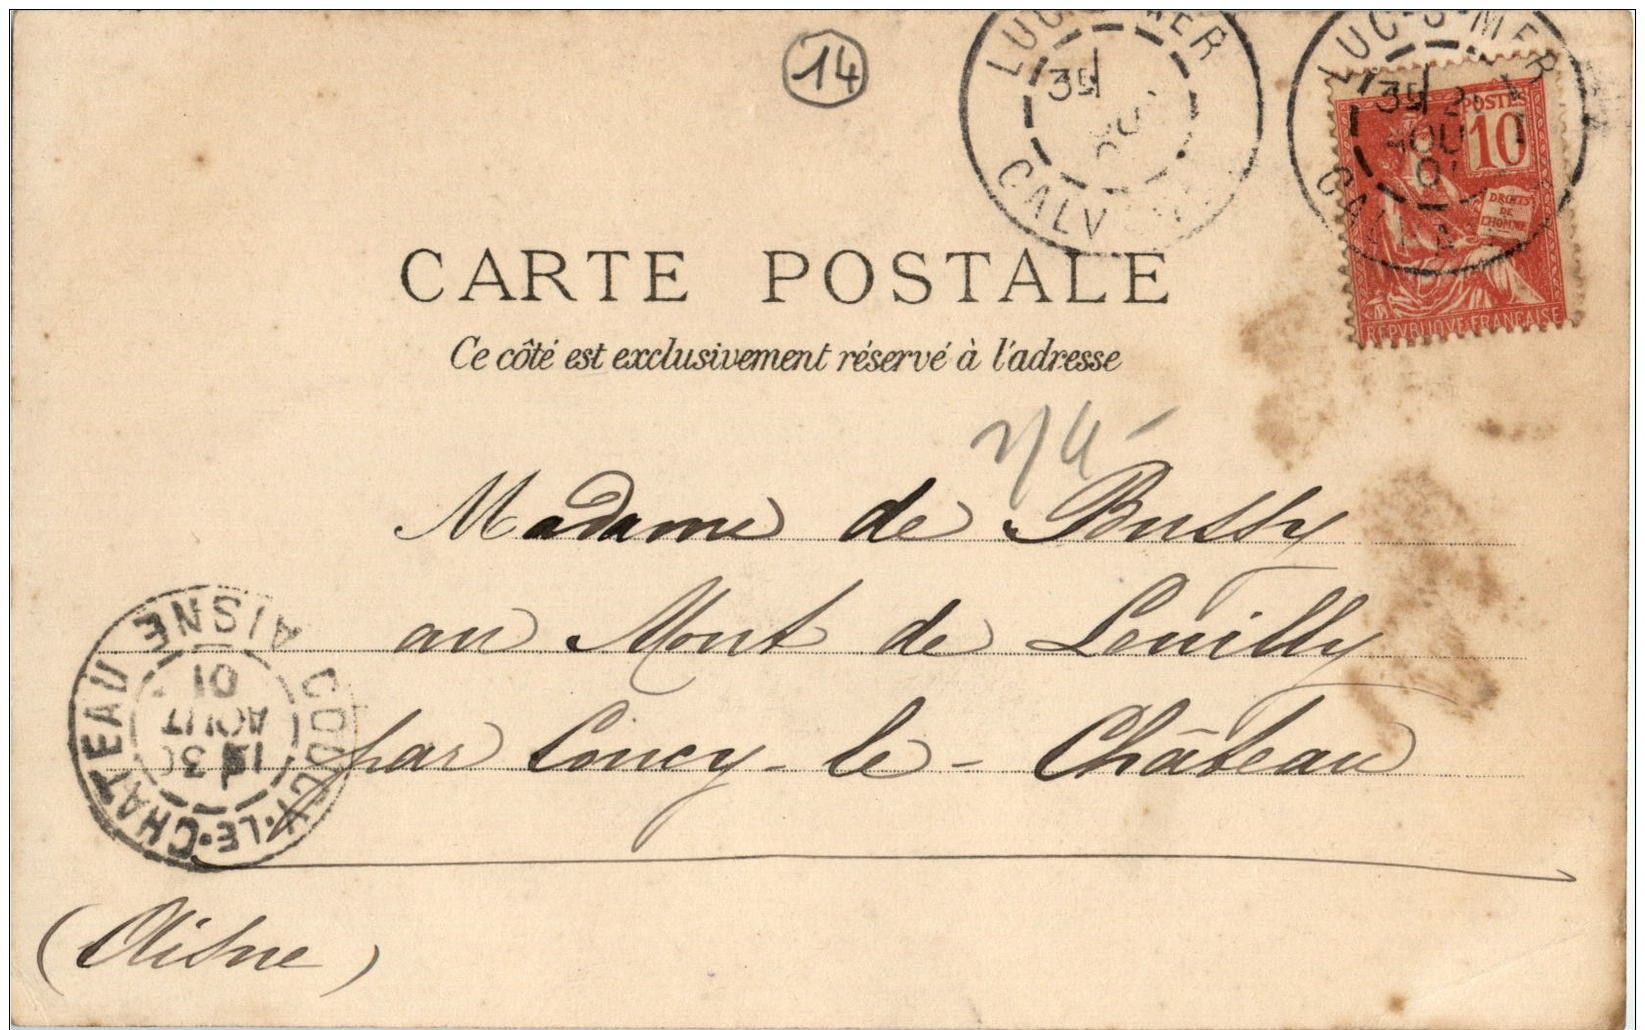 14
LUC-S-MER
3E
AOU
CALV
LUC-S-MER
3E 2
AOU
01
CALVA
POSTES
10
DROITS
DE
L'HOMME
REPVBLIQVE FRANÇAISE
CARTE POSTALE
Ce côté est exclusivement réservé à l'adresse
Madame de Bussy
au Mont de Leuilly
par Coucy-le-Château
(Aisne)
COUCY-LE-CHATEAU
AISNE
30
AOUT
01